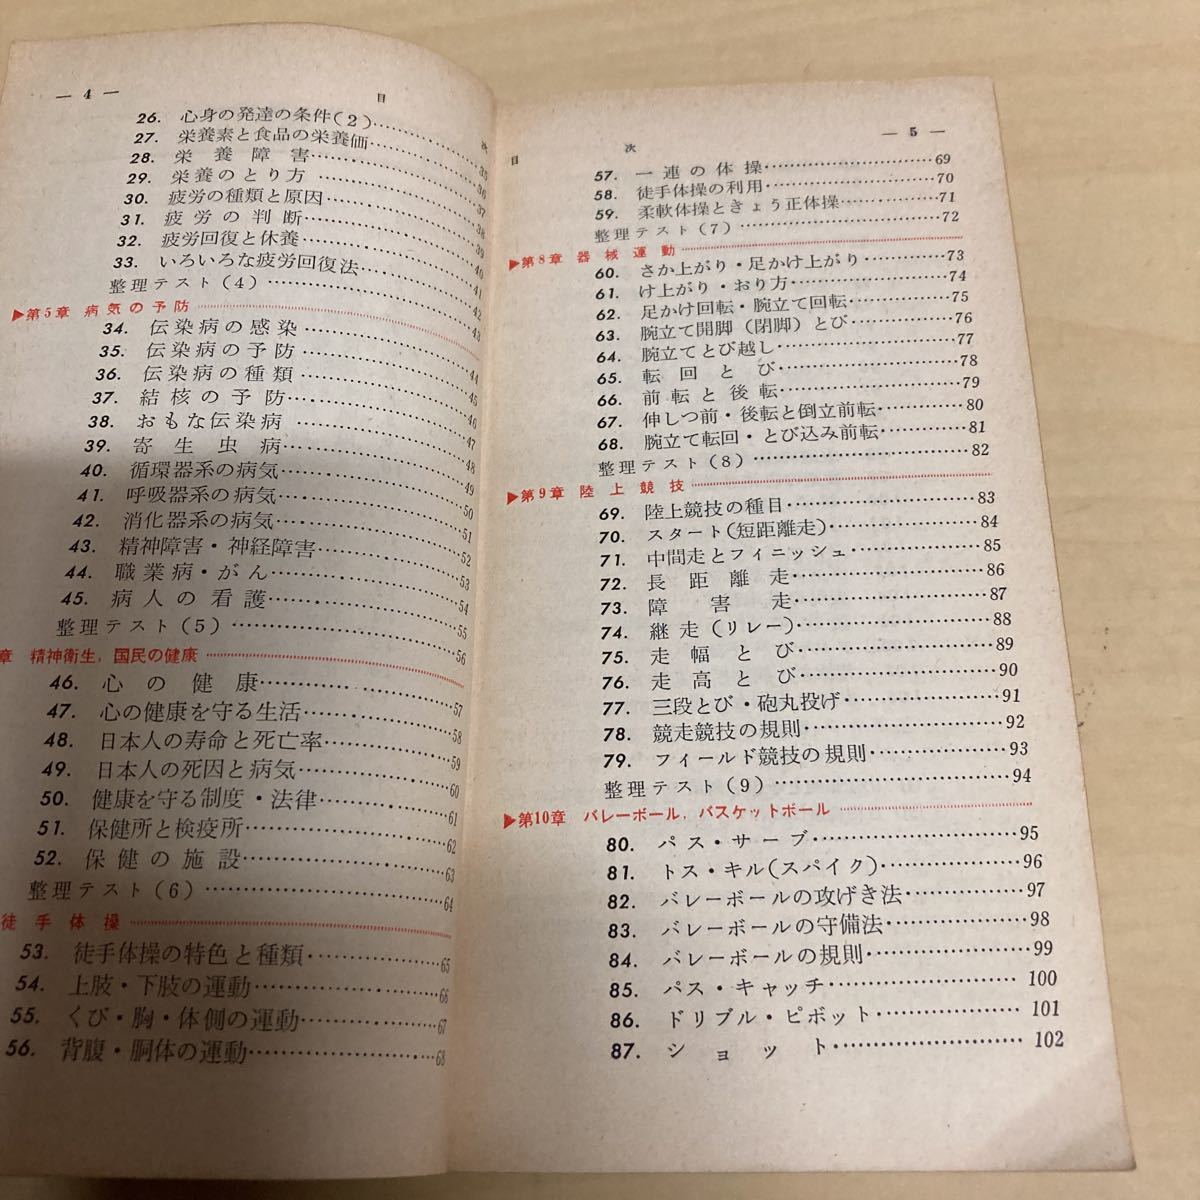 — 4 —
目
次
26. 心身の発達の条件(2)
27. 栄養素と食品の栄養価 35
28. 栄養障害 36
29. 栄養のとり方 37
30. 疲労の種類と原因 38
31. 疲労の判断 39
32. 疲労回復と休養 40
33. いろいろな疲労回復法 41
整理テスト(4) 42
▶第5章 病気の予防 43
34. 伝染病の感染
35. 伝染病の予防 44
36. 伝染病の種類 45
37. 結核の予防 46
38. おもな伝染病 47
39. 寄生虫病 48
40. 循環器系の病気 49
41. 呼吸器系の病気 50
42. 消化器系の病気 51
43. 精神障害・神経障害 52
44. 職業病・がん 53
45. 病人の看護 54
整理テスト(5) 55
章 精神衛生,国民の健康 56
46. 心の健康 57
47. 心の健康を守る生活 58
48. 日本人の寿命と死亡率 59
49. 日本人の死因と病気 60
50. 健康を守る制度・法律 61
51. 保健所と検疫所 62
52. 保健の施設 63
整理テスト(6) 64
徒手体操
53. 徒手体操の特色と種類 65
54. 上肢・下肢の運動 66
55. くび・胸・体側の運動 67
56. 背腹・胴体の運動 68
目
次
— 5 —
57. 一連の体操 69
58. 徒手体操の利用 70
59. 柔軟体操ときょう正体操 71
整理テスト(7) 72
▶第8章 器械運動
60. さか上がり・足かけ上がり 73
61. け上がり・おり方 74
62. 足かけ回転・腕立て回転 75
63. 腕立て開脚(閉脚)とび 76
64. 腕立てとび越し 77
65. 転回とび 78
66. 前転と後転 79
67. 伸しつ前・後転と倒立前転 80
68. 腕立て転回・とび込み前転 81
整理テスト(8) 82
▶第9章 陸上競技
69. 陸上競技の種目 83
70. スタート(短距離走) 84
71. 中間走とフィニッシュ 85
72. 長距離走 86
73. 障害走 87
74. 継走(リレー) 88
75. 走幅とび 89
76. 走高とび 90
77. 三段とび・砲丸投げ 91
78. 競走競技の規則 92
79. フィールド競技の規則 93
整理テスト(9) 94
▶第10章 バレーボール,バスケットボール
80. パス・サーブ 95
81. トス・キル(スパイク) 96
82. バレーボールの攻げき法 97
83. バレーボールの守備法 98
84. バレーボールの規則 99
85. パス・キャッチ 100
86. ドリブル・ピボット 101
87. ショット 102